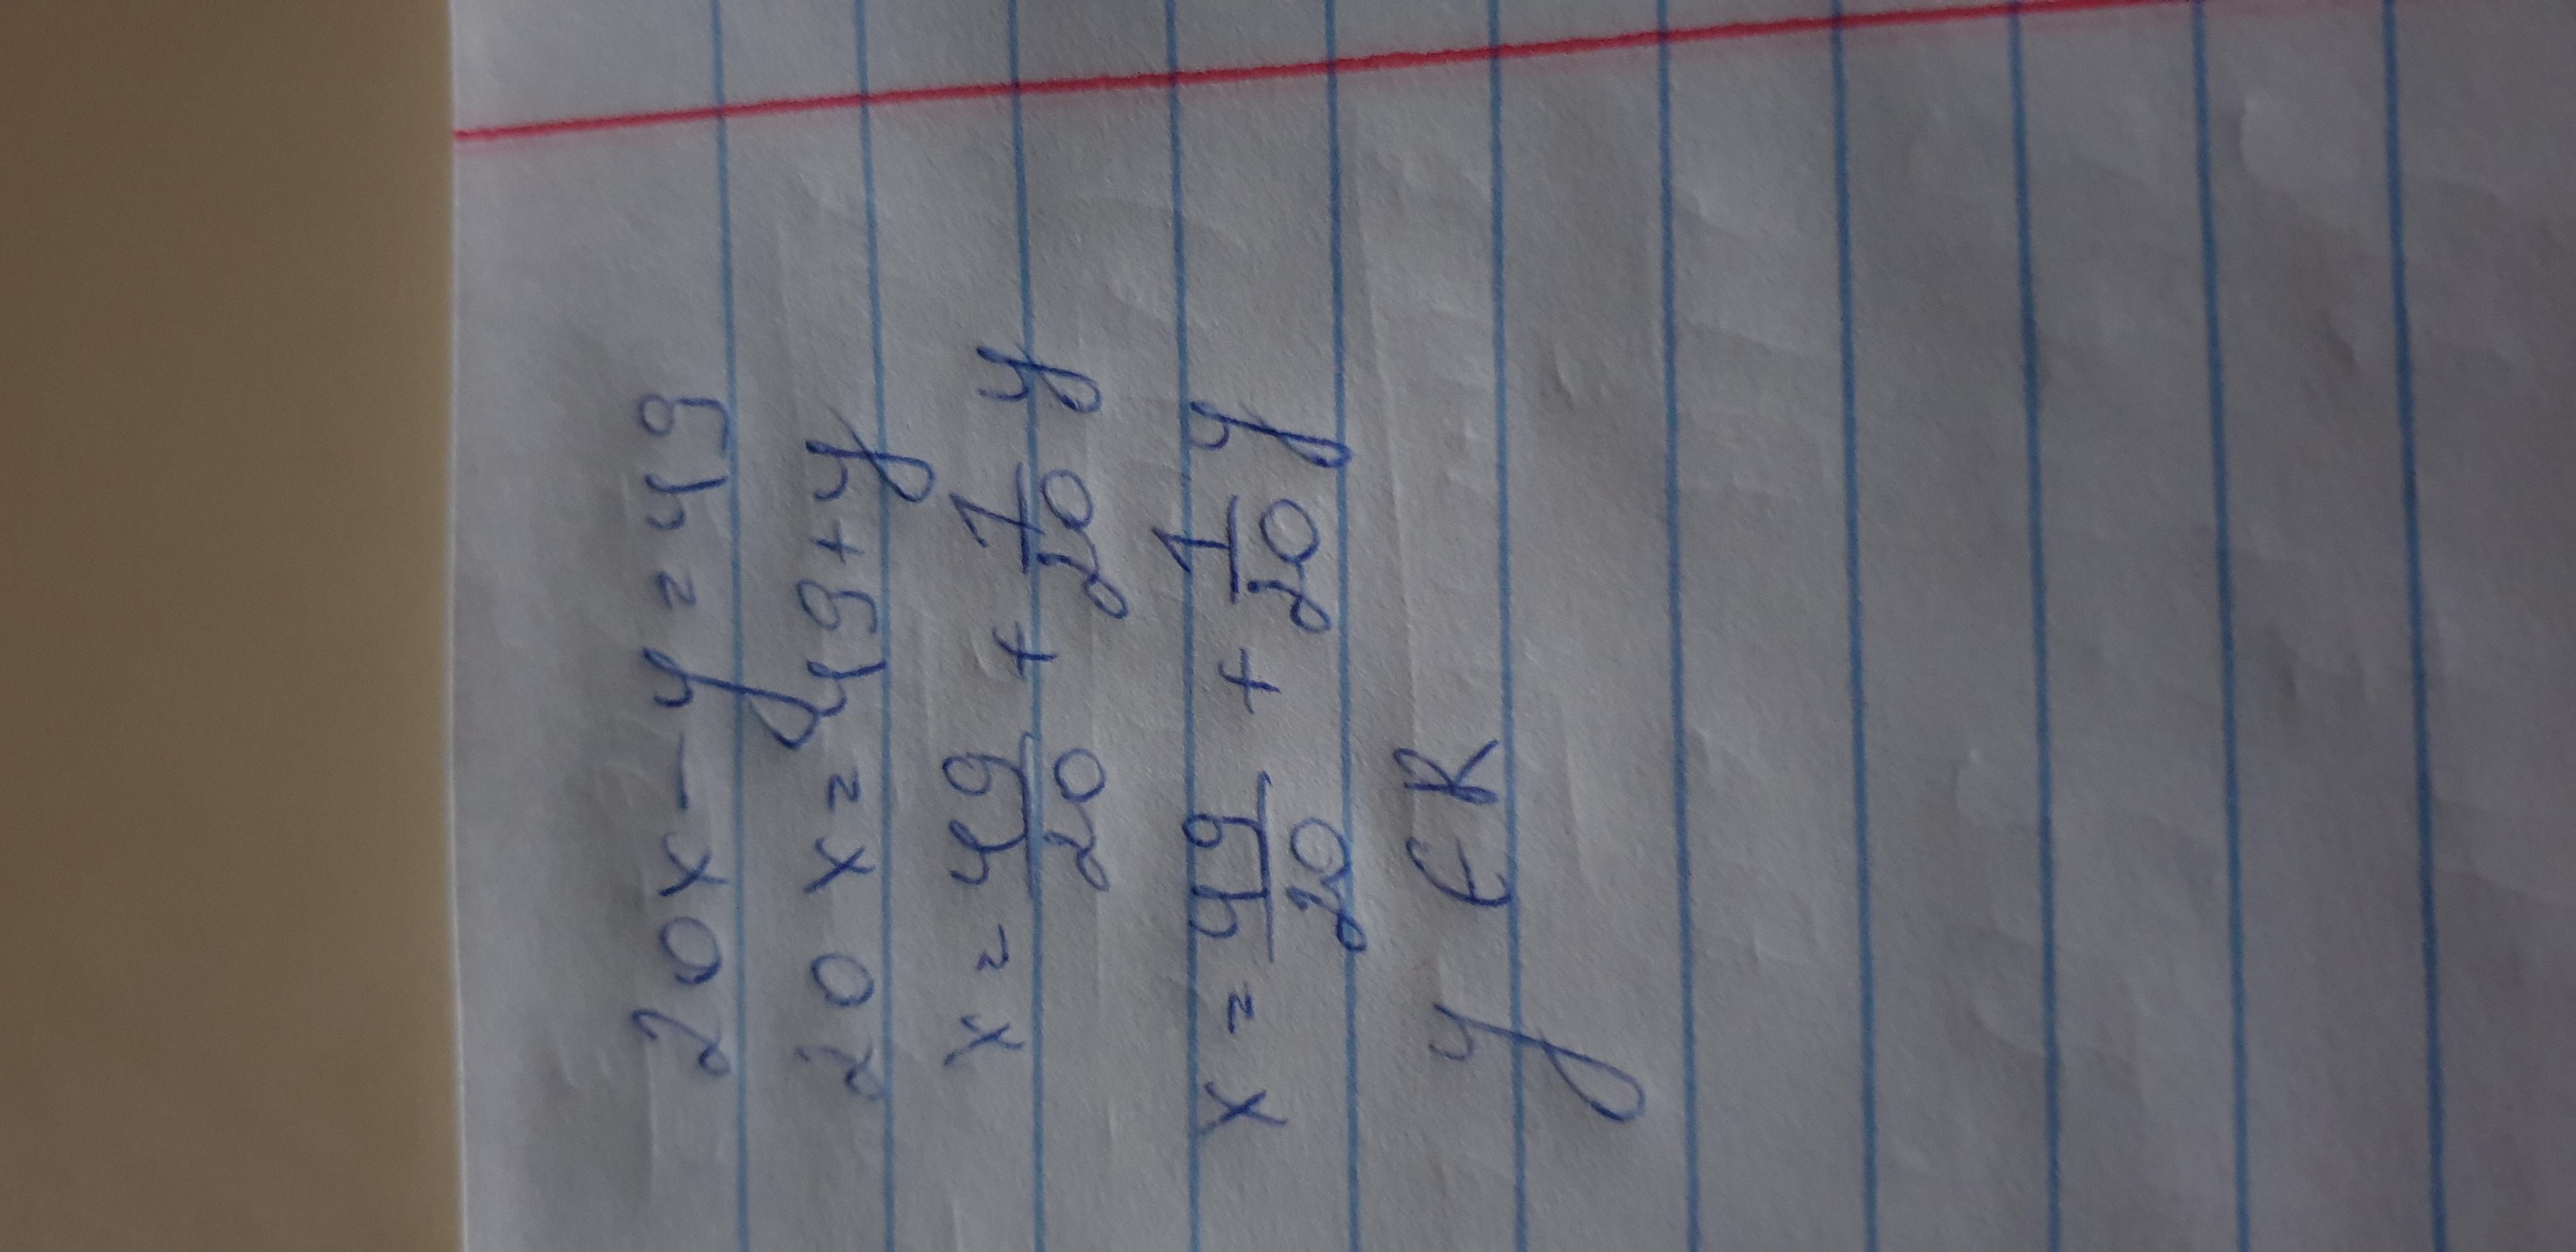 20x - y = 49
20x = 49 + y
x = 49/20 + 1/20 y
x = 49/20 + 1/20 y
y ∈ R